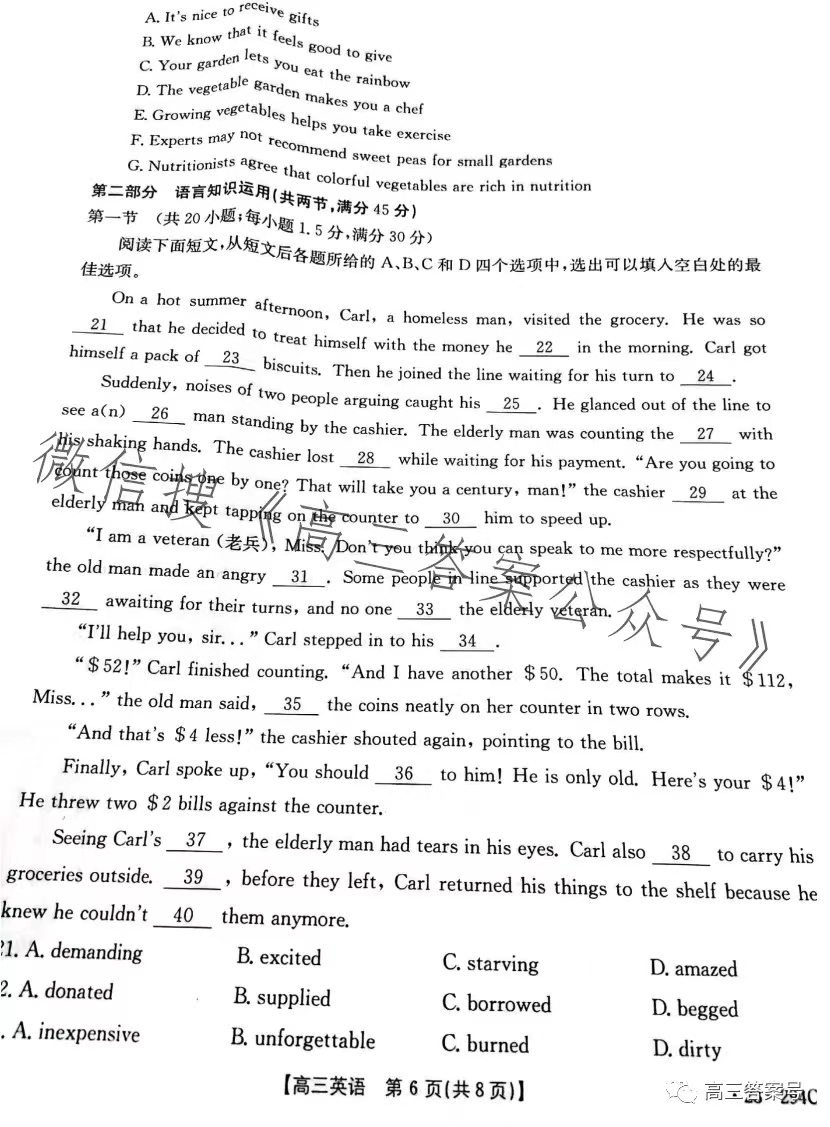 A. It's nice to receive gifts
B. We know that it feels good to give
C. Your garden lets you eat the rainbow
D. The vegetable garden makes you a chef
E. Growing vegetables helps you take exercise
F. Experts may not recommend sweet peas for small gardens
G. Nutritionists agree that colorful vegetables are rich in nutrition
第二部分 语言知识运用(共两节,满分 45 分)
第一节 (共 20 小题;每小题 1.5 分,满分 30 分)
阅读下面短文,从短文后各题所给的 A、B、C 和 D 四个选项中,选出可以填入空白处的最
佳选项。
On a hot summer afternoon, Carl, a homeless man, visited the grocery. He was so
21 that he decided to treat himself with the money he 22 in the morning. Carl got
himself a pack of 23 biscuits. Then he joined the line waiting for his turn to 24 .
Suddenly, noises of two people arguing caught his 25 . He glanced out of the line to
see a(n) 26 man standing by the cashier. The elderly man was counting the 27 with
his shaking hands. The cashier lost 28 while waiting for his payment. “Are you going to
count those coins one by one? That will take you a century, man!” the cashier 29 at the
elderly man and kept tapping on the counter to 30 him to speed up.
“I am a veteran (老兵), Miss! Don't you think you can speak to me more respectfully?”
the old man made an angry 31 . Some people in line supported the cashier as they were
32 awaiting for their turns, and no one 33 the elderly veteran.
“I'll help you, sir...” Carl stepped in to his 34 .
“$52!” Carl finished counting. “And I have another $50. The total makes it $112,
Miss...” the old man said, 35 the coins neatly on her counter in two rows.
“And that's $4 less!” the cashier shouted again, pointing to the bill.
Finally, Carl spoke up, “You should 36 to him! He is only old. Here's your $4!”
He threw two $2 bills against the counter.
Seeing Carl's 37 , the elderly man had tears in his eyes. Carl also 38 to carry his
groceries outside. 39 , before they left, Carl returned his things to the shelf because he
knew he couldn't 40 them anymore.
21. A. demanding B. excited C. starving D. amazed
2. A. donated B. supplied C. borrowed D. begged
. A. inexpensive B. unforgettable C. burned D. dirty
【高三英语 第 6 页(共 8 页)】
微信搜《高三答案公众号》
高三答案号